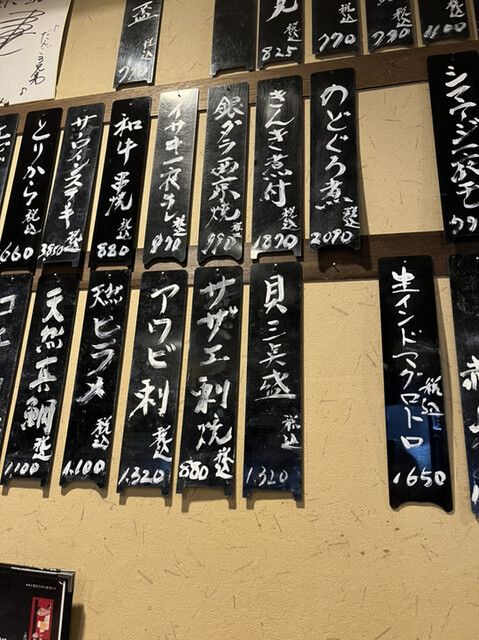 盃 税込 770
税込 825
税込 770
税込
税込
シマアジ一夜干
のどぐろ煮 税込 2090
きんき煮付 税込 1870
銀ダラ西京焼 税込 990
イサキ一夜干し 税込 970
和牛串焼 税込 880
サーロインステーキ 税込
とりから 税込 660
生インドマグロトロ 税込 1650
貝三点盛 税込 1.320
サザエ刺焼 税込 880
アワビ刺 税込 1.320
天然ヒラメ 税込 1.100
天然真鯛 税込 1.100